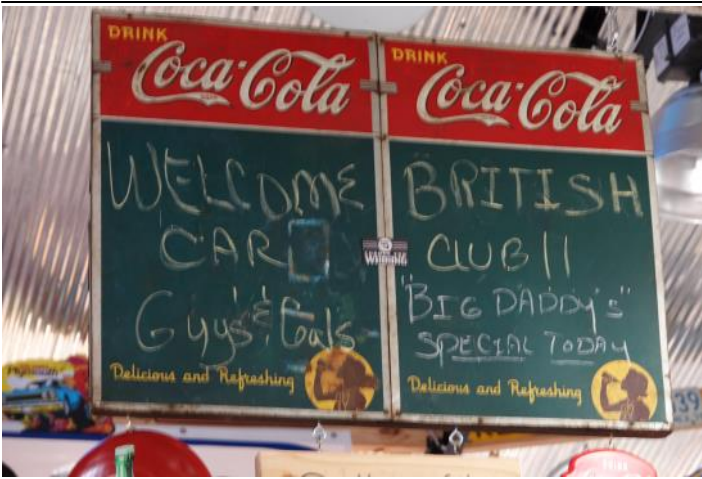 DRINK
Coca-Cola
WELCOME
CAR
Guys & Gals
Delicious and Refreshing
DRINK
Coca-Cola
BRITISH
CLUB !!
"BIG DADDY'S"
SPECIAL TODAY
Delicious and Refreshing
39